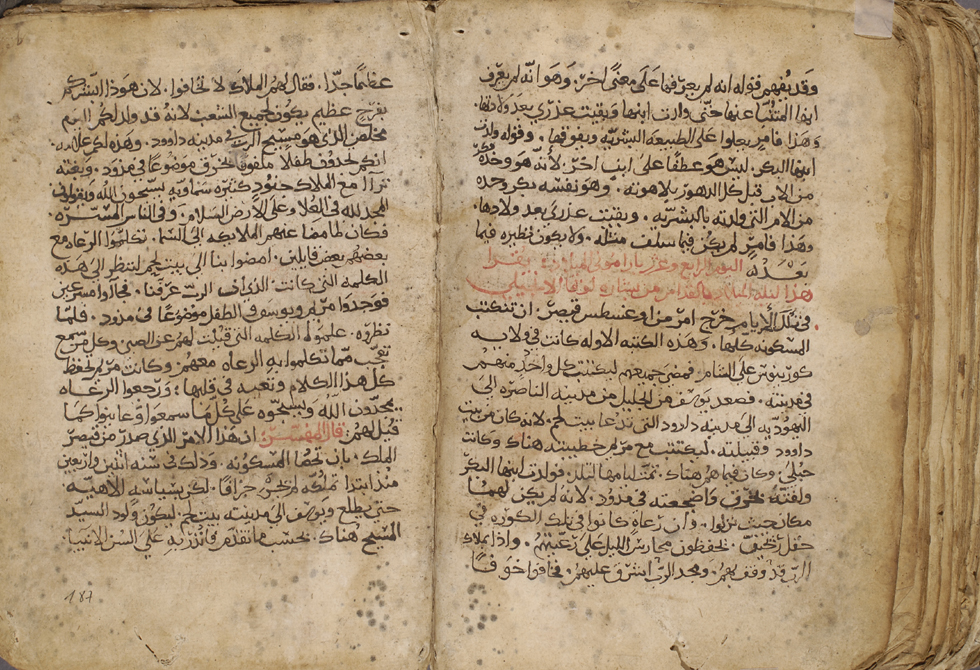 وقد يفهم قوله انه لم يعرفها على معنى اخر. وهو انه لم يعرف
ابنها المتنبا عنها حتى ولدت ابنها وبقيت عذرى بعد ولادها.
وهذا فامر يعلوا على الطبيعه البشريه ويفوقها. وقوله ولدت
ابنها البكر. ليس هو عطفا على ابن اخر. لانه هو وحده بكر
من الاب قبل كل الدهور بلاهوته. وهو نفسه بكر وحده
من الام التي ولدته بالبشريه. وبقيت عذرى بعد ولادها.
وهذا فامر لم يكن فيما سلف مثله. ولا يكون نظيره فيما
بعد له اليوم الرابع وعشرين بارامون الميلاد يقرا
هذا ليله الميلاد بالقداس من بشاره لوقا الانجيلي
في تلك الايام خرج امر من اوغسطس قيصر. ان تكتتب
المسكونه كلها. وهذه الكتبه الاوله كانت في ولايه
كورينوس على الشام. فمضى جميعهم ليكتتب كل واحد منهم
في مدينته. فصعد يوسف من الجليل من مدينة الناصره الى
اليهوديه الى مدينة داوود التي تدعا بيت لحم لانه كان من بيت
داوود وقبيلته. ليكتتب مع مريم خطيبته هناك وكانت
حبلى. وكان فيما هم هناك. تمت ايامها لتلد. فولدت ابنها البكر
ولفته بخرق واضجعته في مدود. لانه لم يكن لهما
مكان حيث نزلوا. وان رعاة كانوا في تلك الكوره في
حقل يحفظون محارس الليل على رعيتهم. واذا بملاك
الرب قد وقف بهم. ومجد الرب اشرق عليهم. فخافوا خوفا
عظيما جدا. فقال لهم الملاك لا تخافوا. لان هوذا ابشركم
بفرح عظيم يكون لجميع الشعب لانه قد ولد لكم اليوم
مخلص الذي هو مسيح الرب في مدينه داوود. وهذه لكم علامه.
انكم تجدون طفلا ملفوفا بخرق موضوعا في مدود. وبغته
تراا مع الملاك جنود كثيره سماويه يسبحون الله ويقولون
المجد لله في العلا وعلى الارض السلام. وفي الناس المسره.
فكان لما مضا عنهم الملايكه الى السما. تكلموا الرعاه مع
بعضهم بعض قايلين. امضوا بنا الى بيت لحم لننظر الى هذه
الكلمه التي كانت الذي الرب عرفنا. فجاوا مسرعين
فوجدوا مريم ويوسف والطفل موضوعا في مدود. فلما
نظروه. علموا الكلمه التي قيلت لهم عن الصبي وكل من سمع
تعجب مما تكلموا به الرعاه معهم. وكانت مريم تحفظ
كل هذا الكلام وتعيه في قلبها؛ ورجعوا الرعاه
يمجدون الله ويسبحوه على كل ما سمعوا وعاينوا كما
قيل لهم: قال المفسر ان هذا الامر الذي صدر من قيصر
الملك. بان تحصا المسكونه. وذلك في سنه اثنين واربعين
منذ ابتدا ملكه لم يخرج جزافا. لكن بسياسه الاهيه
حتى يطلع يوسف الى مدينته بيت لحم. ليكون ولود السيد
المسيح هناك. بحسب ما تقدم فانذر به على السن الانبيا.
187